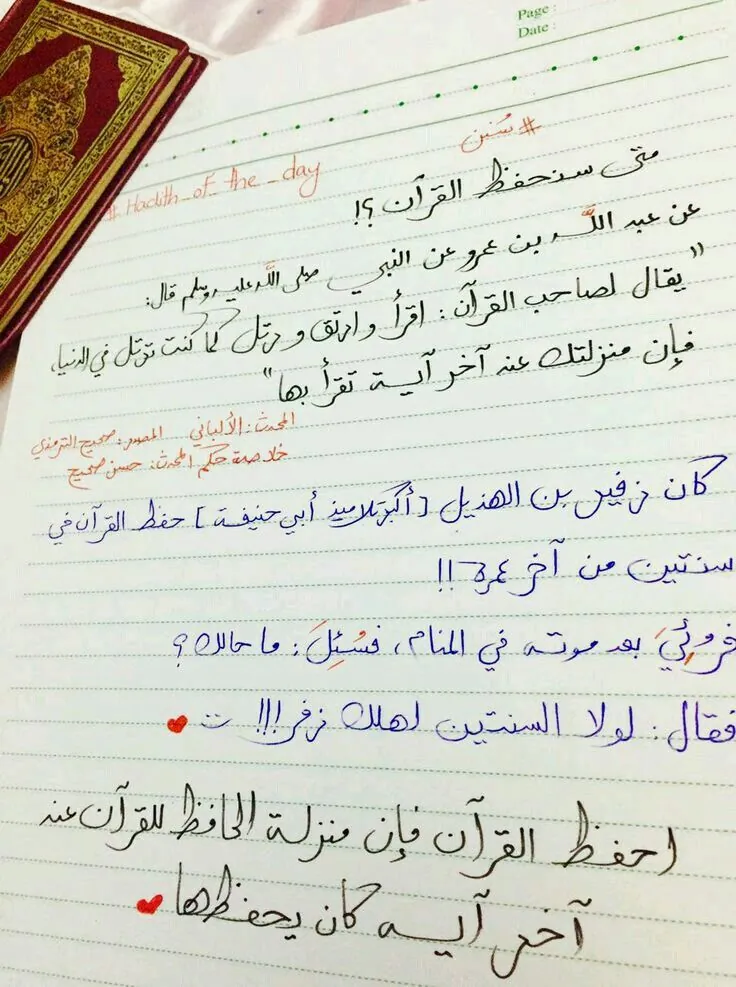 Page :
Date :
#سُنن
#Hadith_of_the_day
متى سنحفظ القرآن ؟!
عن عبد اللَّه بن عمرو عن النبي صلى اللَّه عليه وسلم قال:
"يقال لصاحب القرآن: اقرأ وارتق ورتل كما كنت ترتل في الدنيا،
فإن منزلتك عند آخر آية تقرأ بها"
المحدث: الألباني المصدر: صحيح الترمذي
خلاصة حكم المحدث: حسن صحيح
كان زفر بن الهذيل [أكبر تلاميذ أبي حنيفة] حفظ القرآن في
سنتين من آخر عمره !!
فروئيَ بعد موته في المنام، فسُئِلَ: ما حالك؟
فقال: لولا السنتين لهلك زفر!!!
احفظ القرآن فإن منزلة الحافظ للقرآن عند
آخر آيه كان يحفظها